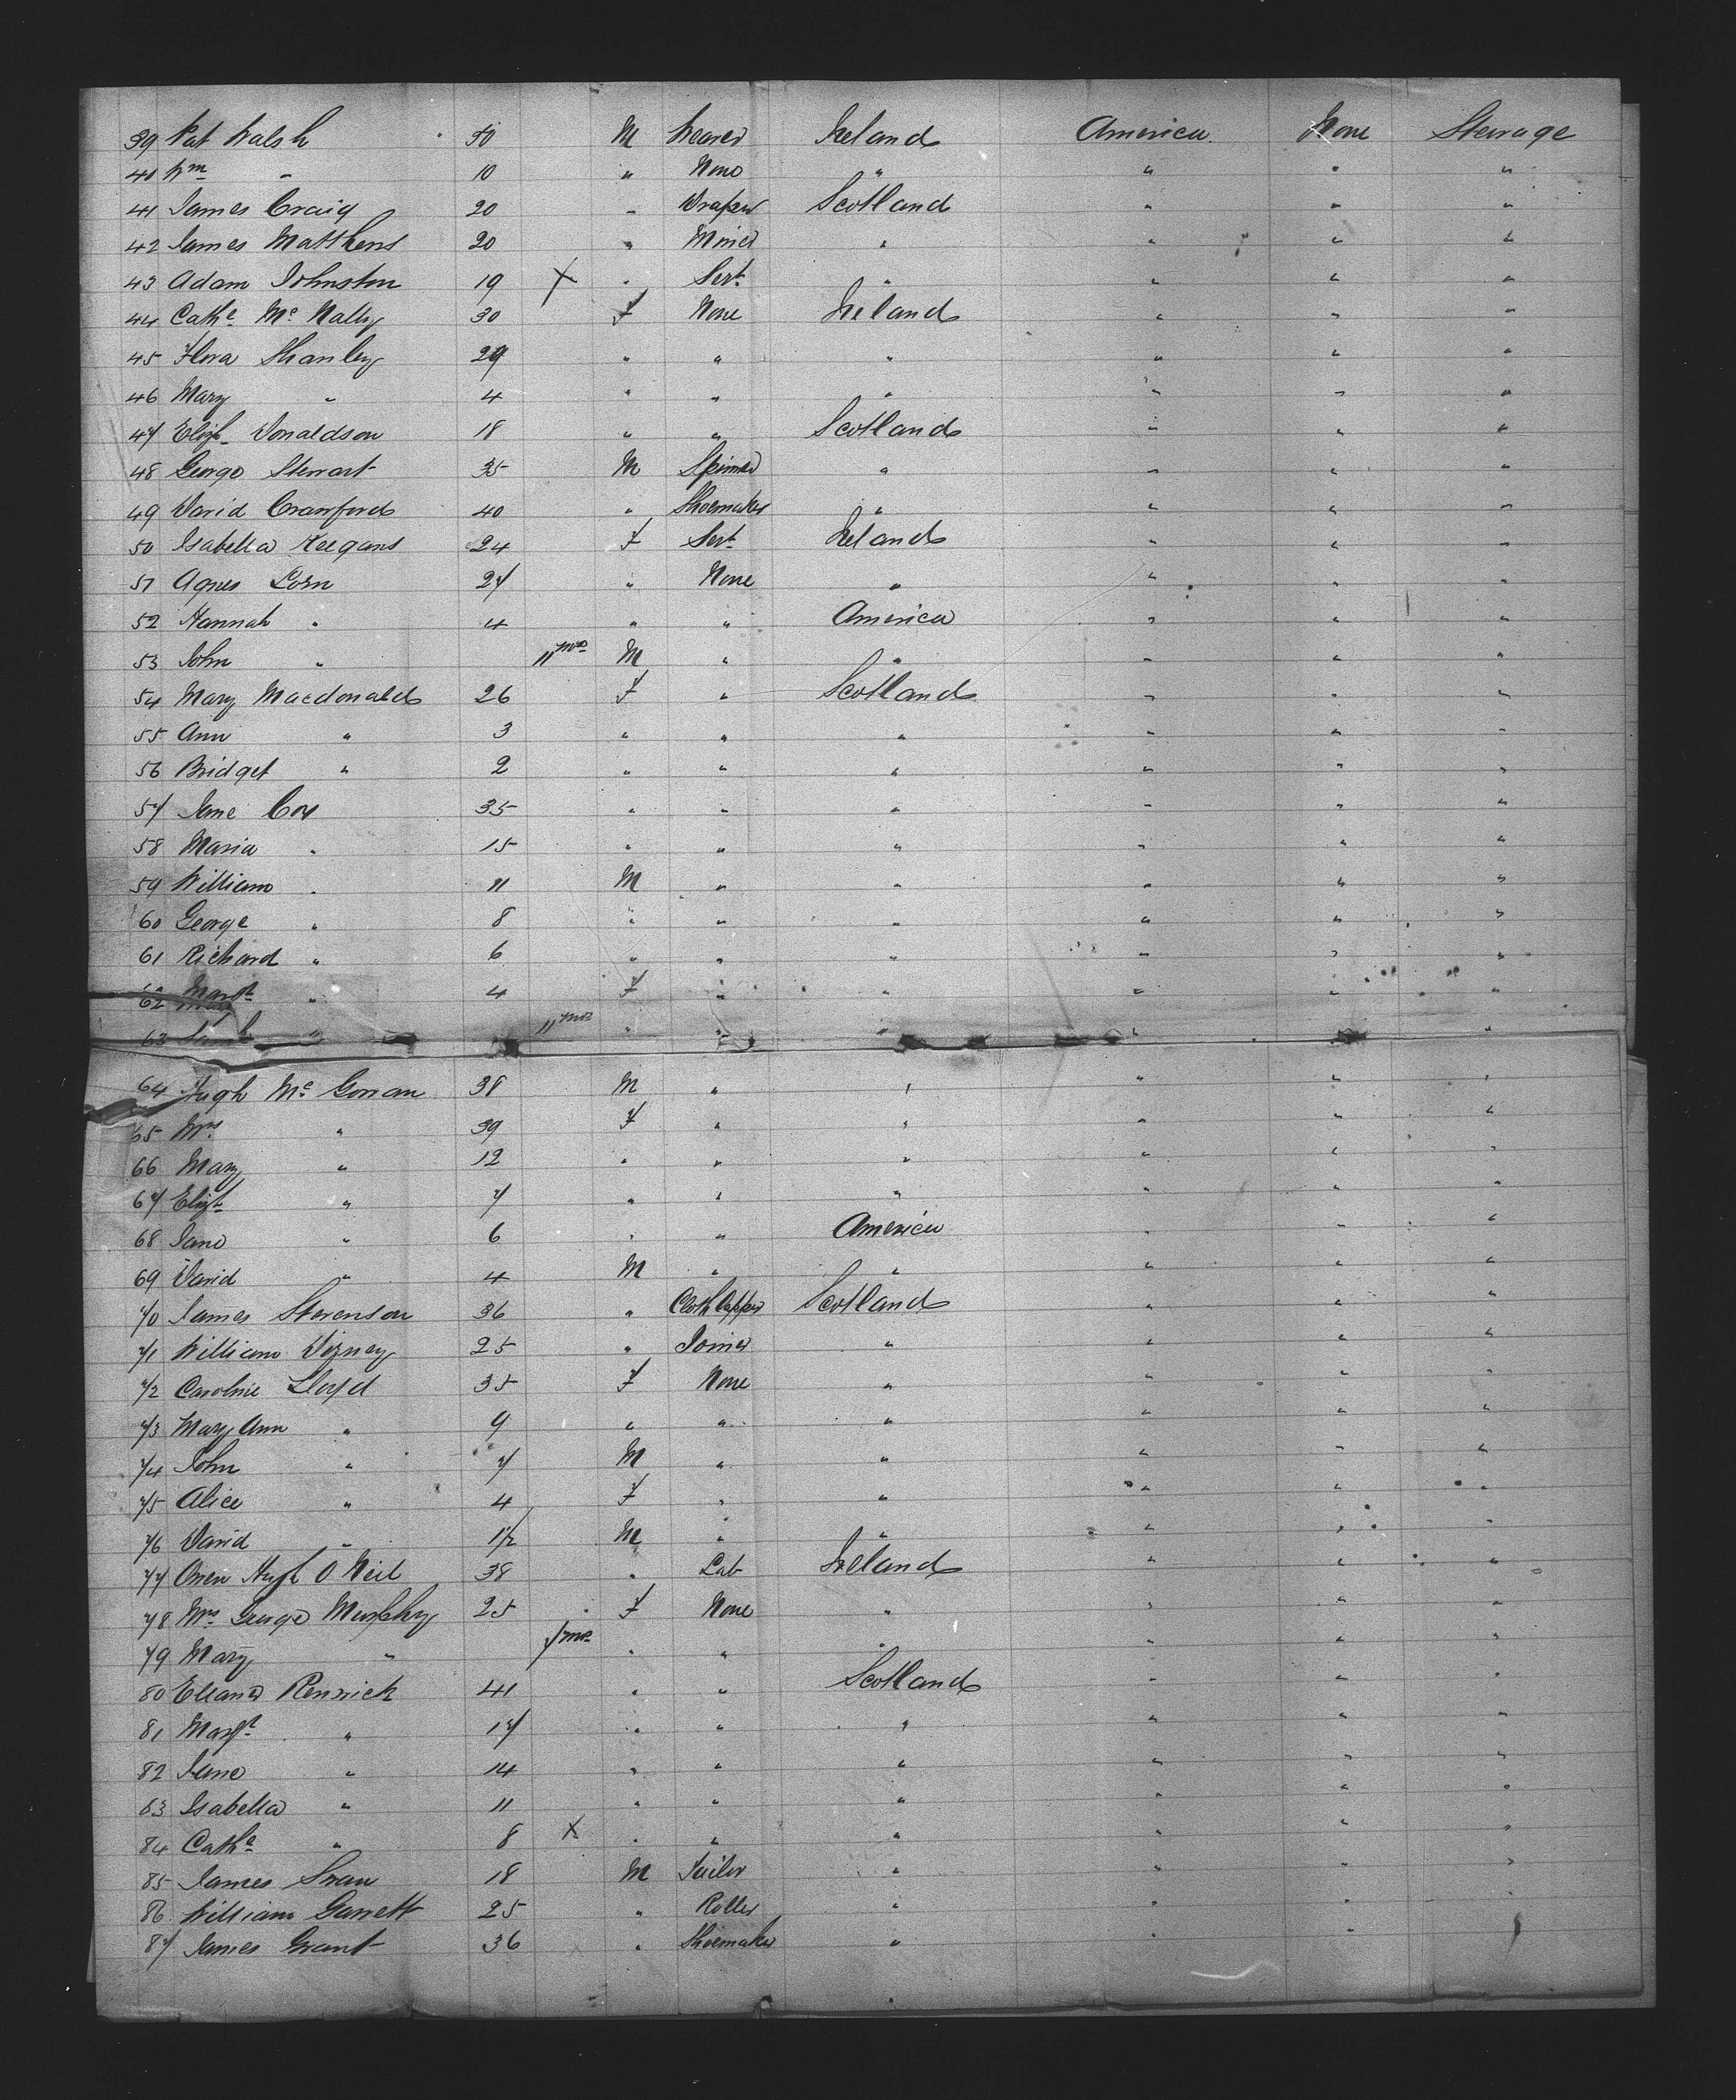 39 Pat Walsh 50 M Weaver Ireland America None Steerage
40 Wm " 10 " None " " " "
41 James Craig 20 " Draper Scotland " " "
42 James Matthews 20 " Miner " " " "
43 Adam Johnston 19 X " Servt " " " "
44 Cathe Mc Nally 30 F None Ireland " " "
45 Flora Shanley 29 " " " " " "
46 Mary " 4 " " " " " "
47 Elizh Donaldson 18 " " Scotland " " "
48 George Stewart 35 M Spinner " " " "
49 David Crawford 40 " Shoemaker " " " "
50 Isabella Keegans 24 F Servt Ireland " " "
51 Agnes Lorn 27 " None " " " "
52 Hannah " 4 " " America " " "
53 John " 11 mos M " " " " "
54 Mary Macdonald 26 F " Scotland " " "
55 Ann " 3 " " " " " "
56 Bridget " 2 " " " " " "
57 Jane Coy 35 " " " " " "
58 Maria " 15 " " " " " "
59 William " 11 M " " " " "
60 George " 8 " " " " " "
61 Richard " 6 " " " " " "
62 Margt " 4 F " " " " "
63 " 11 mos " " " " "
64 Hugh Mc Gowan 38 M " " " " "
65 Mrs " 39 F " " " " "
66 Mary " 12 " " " " " "
67 Elizt " 7 " " " " " "
68 Jane " 6 " " America " " "
69 David " 4 M " " " " "
70 James Stevenson 36 " Cloth Lapper Scotland " " "
71 William Vizney 25 " Joiner " " " "
72 Caroline Lloyd 35 F None " " " "
73 Mary Ann " 9 " " " " " "
74 John " 7 M " " " " "
75 Alice " 4 F " " " " "
76 David " 1/2 M " " " " "
77 Owen Hugh O Neil 38 " Lab Ireland " " "
78 Mrs George Murphy 25 F None " " " "
79 Mary " 7 mos " " " " " "
80 Eleanor Rennick 41 " " Scotland " " "
81 Margt " 17 " " " " " "
82 Jane " 14 " " " " " "
83 Isabella " 11 " " " " " "
84 Cathe " 8 X " " " " " "
85 James Swan 18 M Tailor " " " "
86 William Garrett 25 " Roller " " "
87 James Grant 36 " Shoemaker " " "